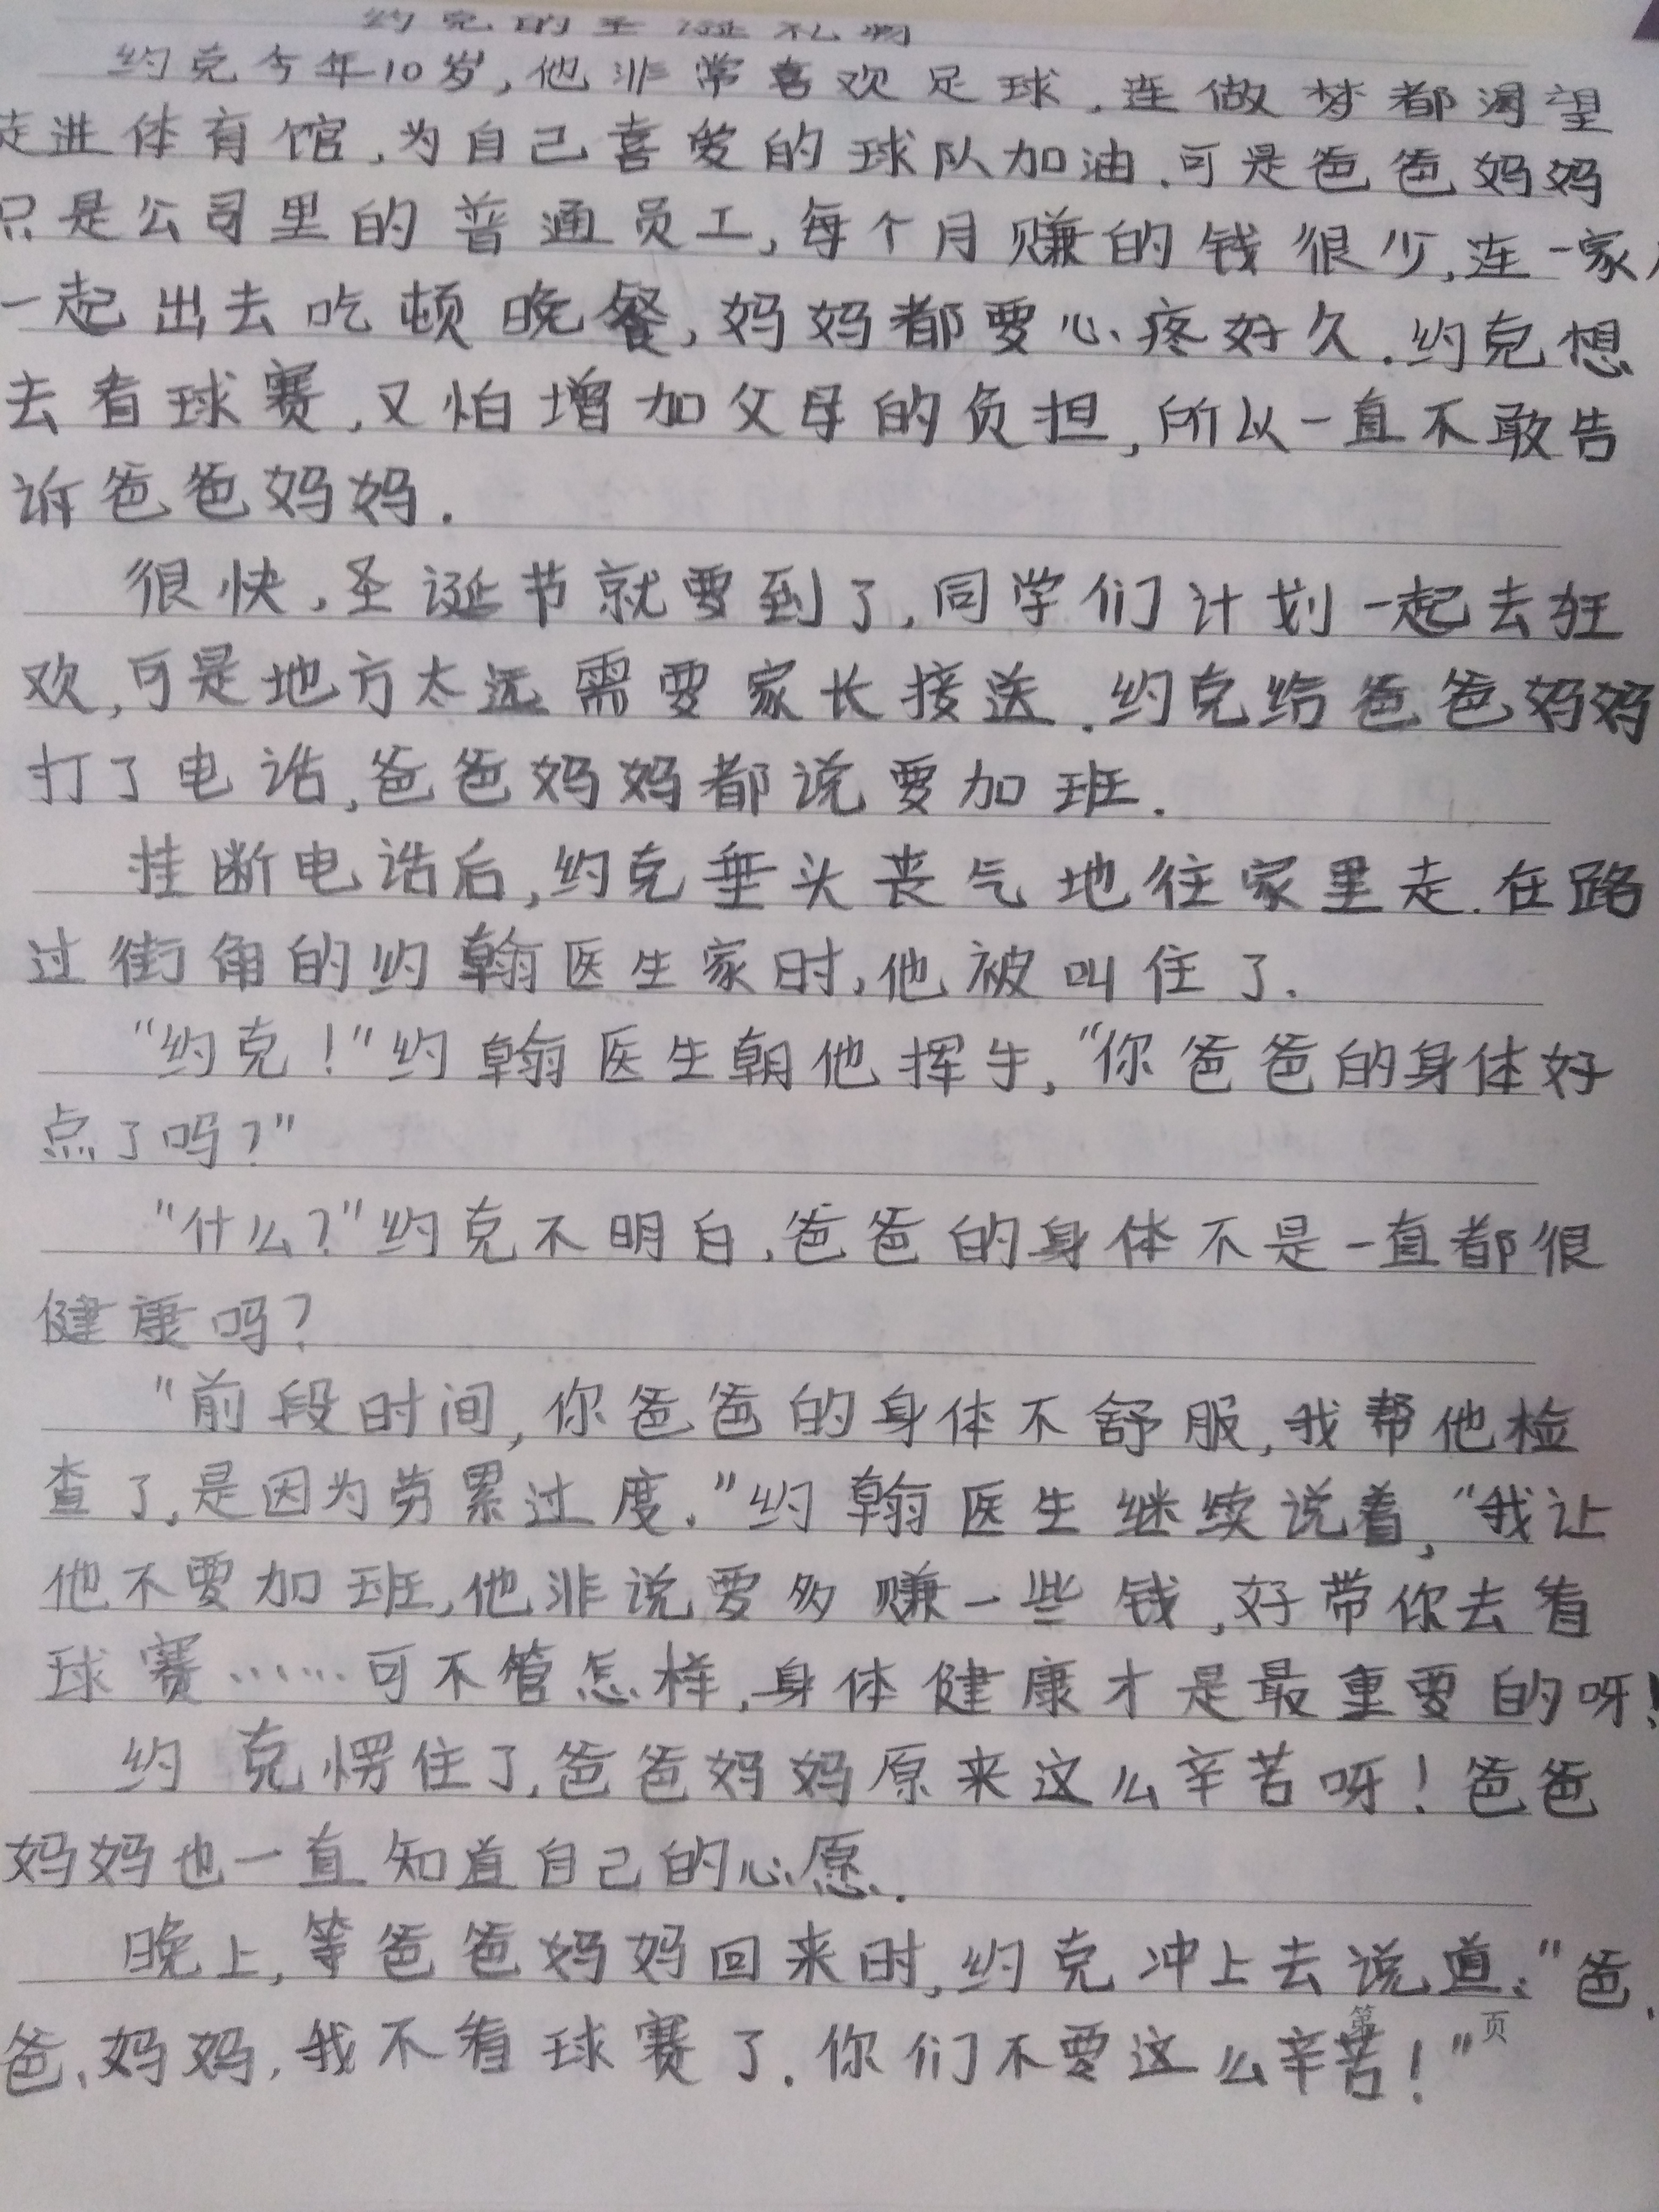 约克的圣诞礼物
约克今年10岁,他非常喜欢足球,连做梦都渴望
走进体育馆,为自己喜爱的球队加油.可是爸爸妈妈
只是公司里的普通员工,每个月赚的钱很少,连一家人
一起出去吃顿晚餐,妈妈都要心疼好久.约克想
去看球赛,又怕增加父母的负担,所以一直不敢告
诉爸爸妈妈.
很快,圣诞节就要到了,同学们计划一起去狂
欢,可是地方太远需要家长接送.约克给爸爸妈妈
打了电话,爸爸妈妈都说要加班.
挂断电话后,约克垂头丧气地往家里走.在路
过街角的约翰医生家时,他被叫住了.
“约克!”约翰医生朝他挥手,“你爸爸的身体好
点了吗?”
“什么?”约克不明白,爸爸的身体不是一直都很
健康吗?
“前段时间,你爸爸的身体不舒服,我帮他检
查了,是因为劳累过度.”约翰医生继续说着,“我让
他不要加班,他非说要多赚一些钱,好带你去看
球赛……可不管怎样,身体健康才是最重要的呀!
约克愣住了,爸爸妈妈原来这么辛苦呀!爸爸
妈妈也一直知道自己的心愿.
晚上,等爸爸妈妈回来时,约克冲上去说道:“爸
爸、妈妈,我不看球赛了.你们不要这么辛苦!”
第 页